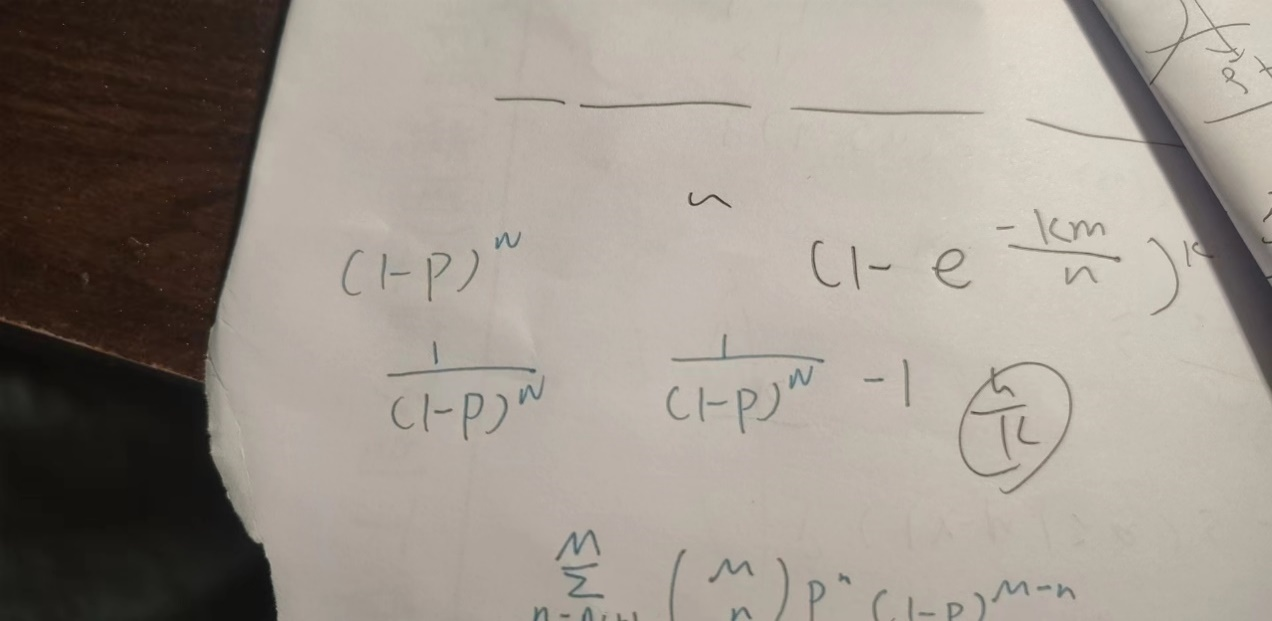 n
(1-p)^N (1- e^{-\frac{km}{n}})^k
\frac{1}{(1-p)^N} \frac{1}{(1-p)^N} -1 \frac{n}{k}
\sum^{M} \binom{M}{n} p^n (1-p)^{M-n}